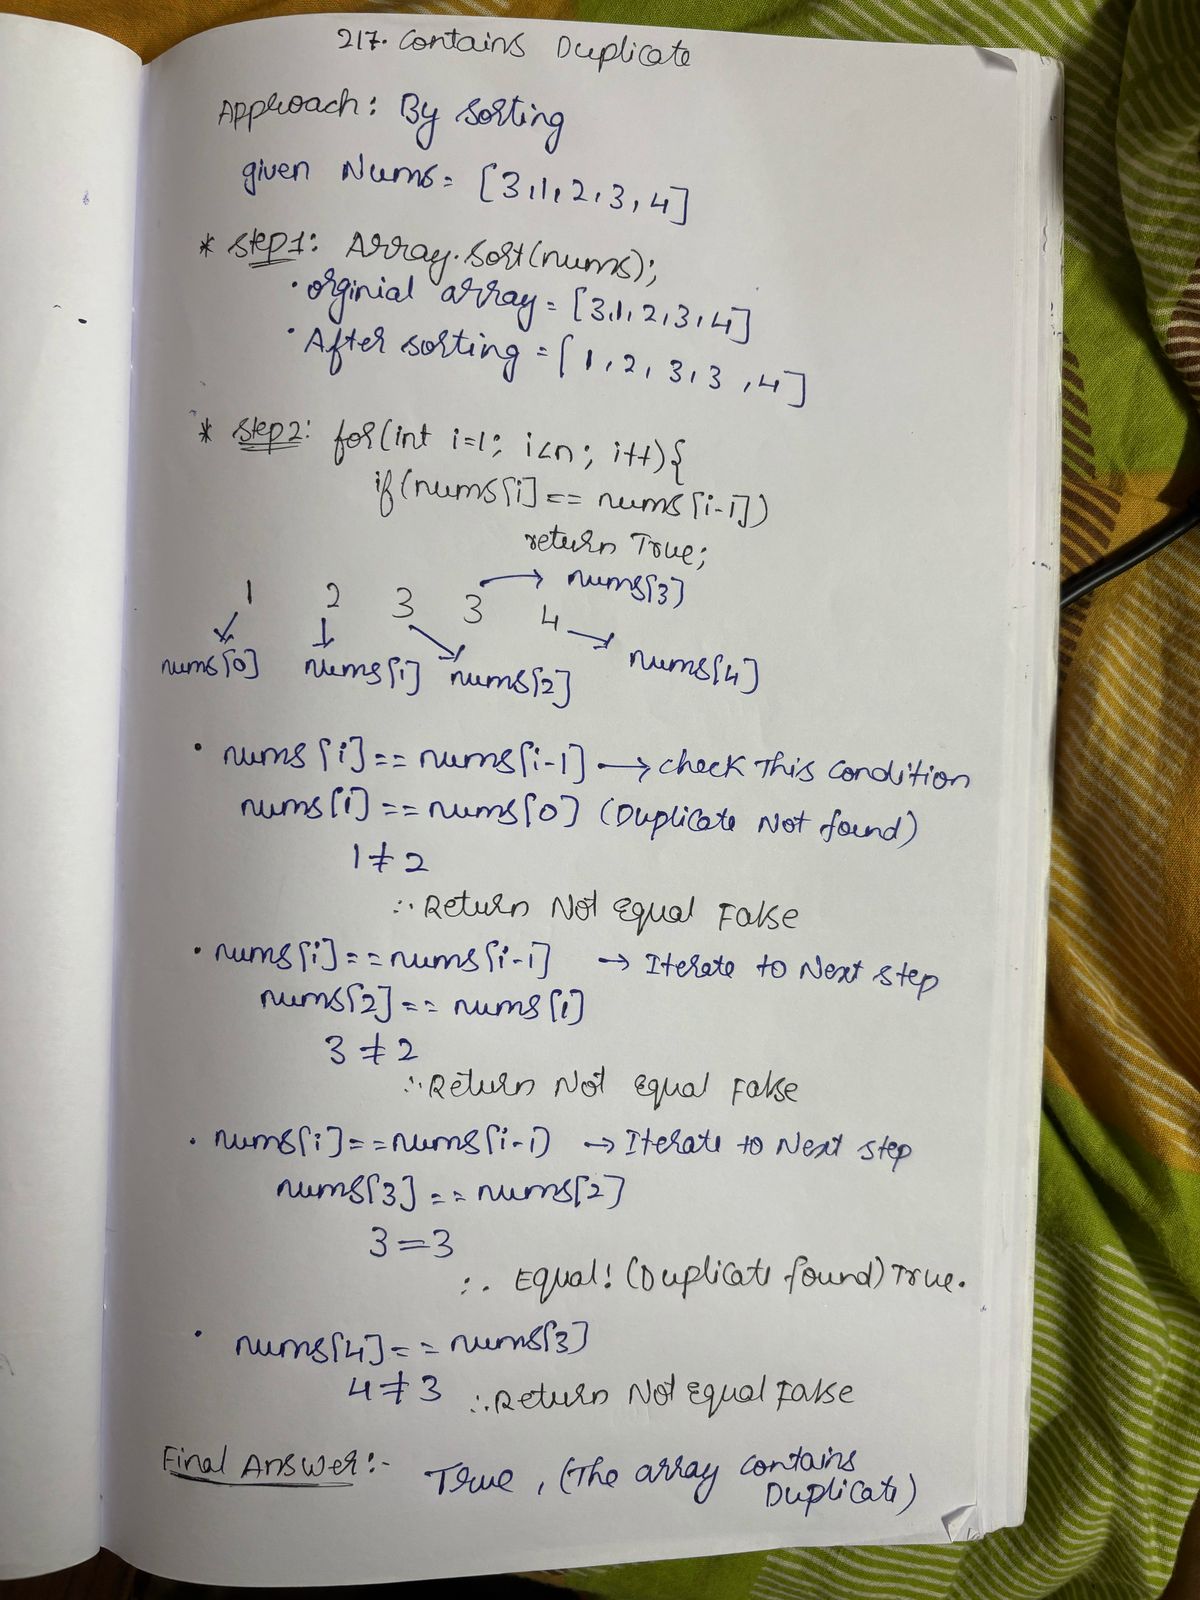 217. Contains Duplicate
Approach: By Sorting
given Nums= [3,1,2,3,4]
* Step1: Array.Sort(nums);
• orginial array = [3,1,2,3,4]
• After sorting = [1,2,3,3,4]
* Step2: for(int i=1; i<n; i++){
if(nums[i] == nums[i-1])
return True;
1 2 3 3 → nums[3] 4
nums[0] nums[1] nums[2] nums[4]
• nums[i] == nums[i-1] → check This Condition
nums[1] == nums[0] (Duplicate Not found)
1 ≠ 2
∴ Return Not Equal False
• nums[i] == nums[i-1] → Iterate to Next step
nums[2] == nums[1]
3 ≠ 2
∴ Return Not Equal False
• nums[i] == nums[i-1) → Iterate to Next step
nums[3] == nums[2]
3 = 3
∴ Equal! (Duplicate found) True.
• nums[4] == nums[3]
4 ≠ 3 ∴ Return Not Equal False
Final Answer:- True, (The array contains
Duplicate)